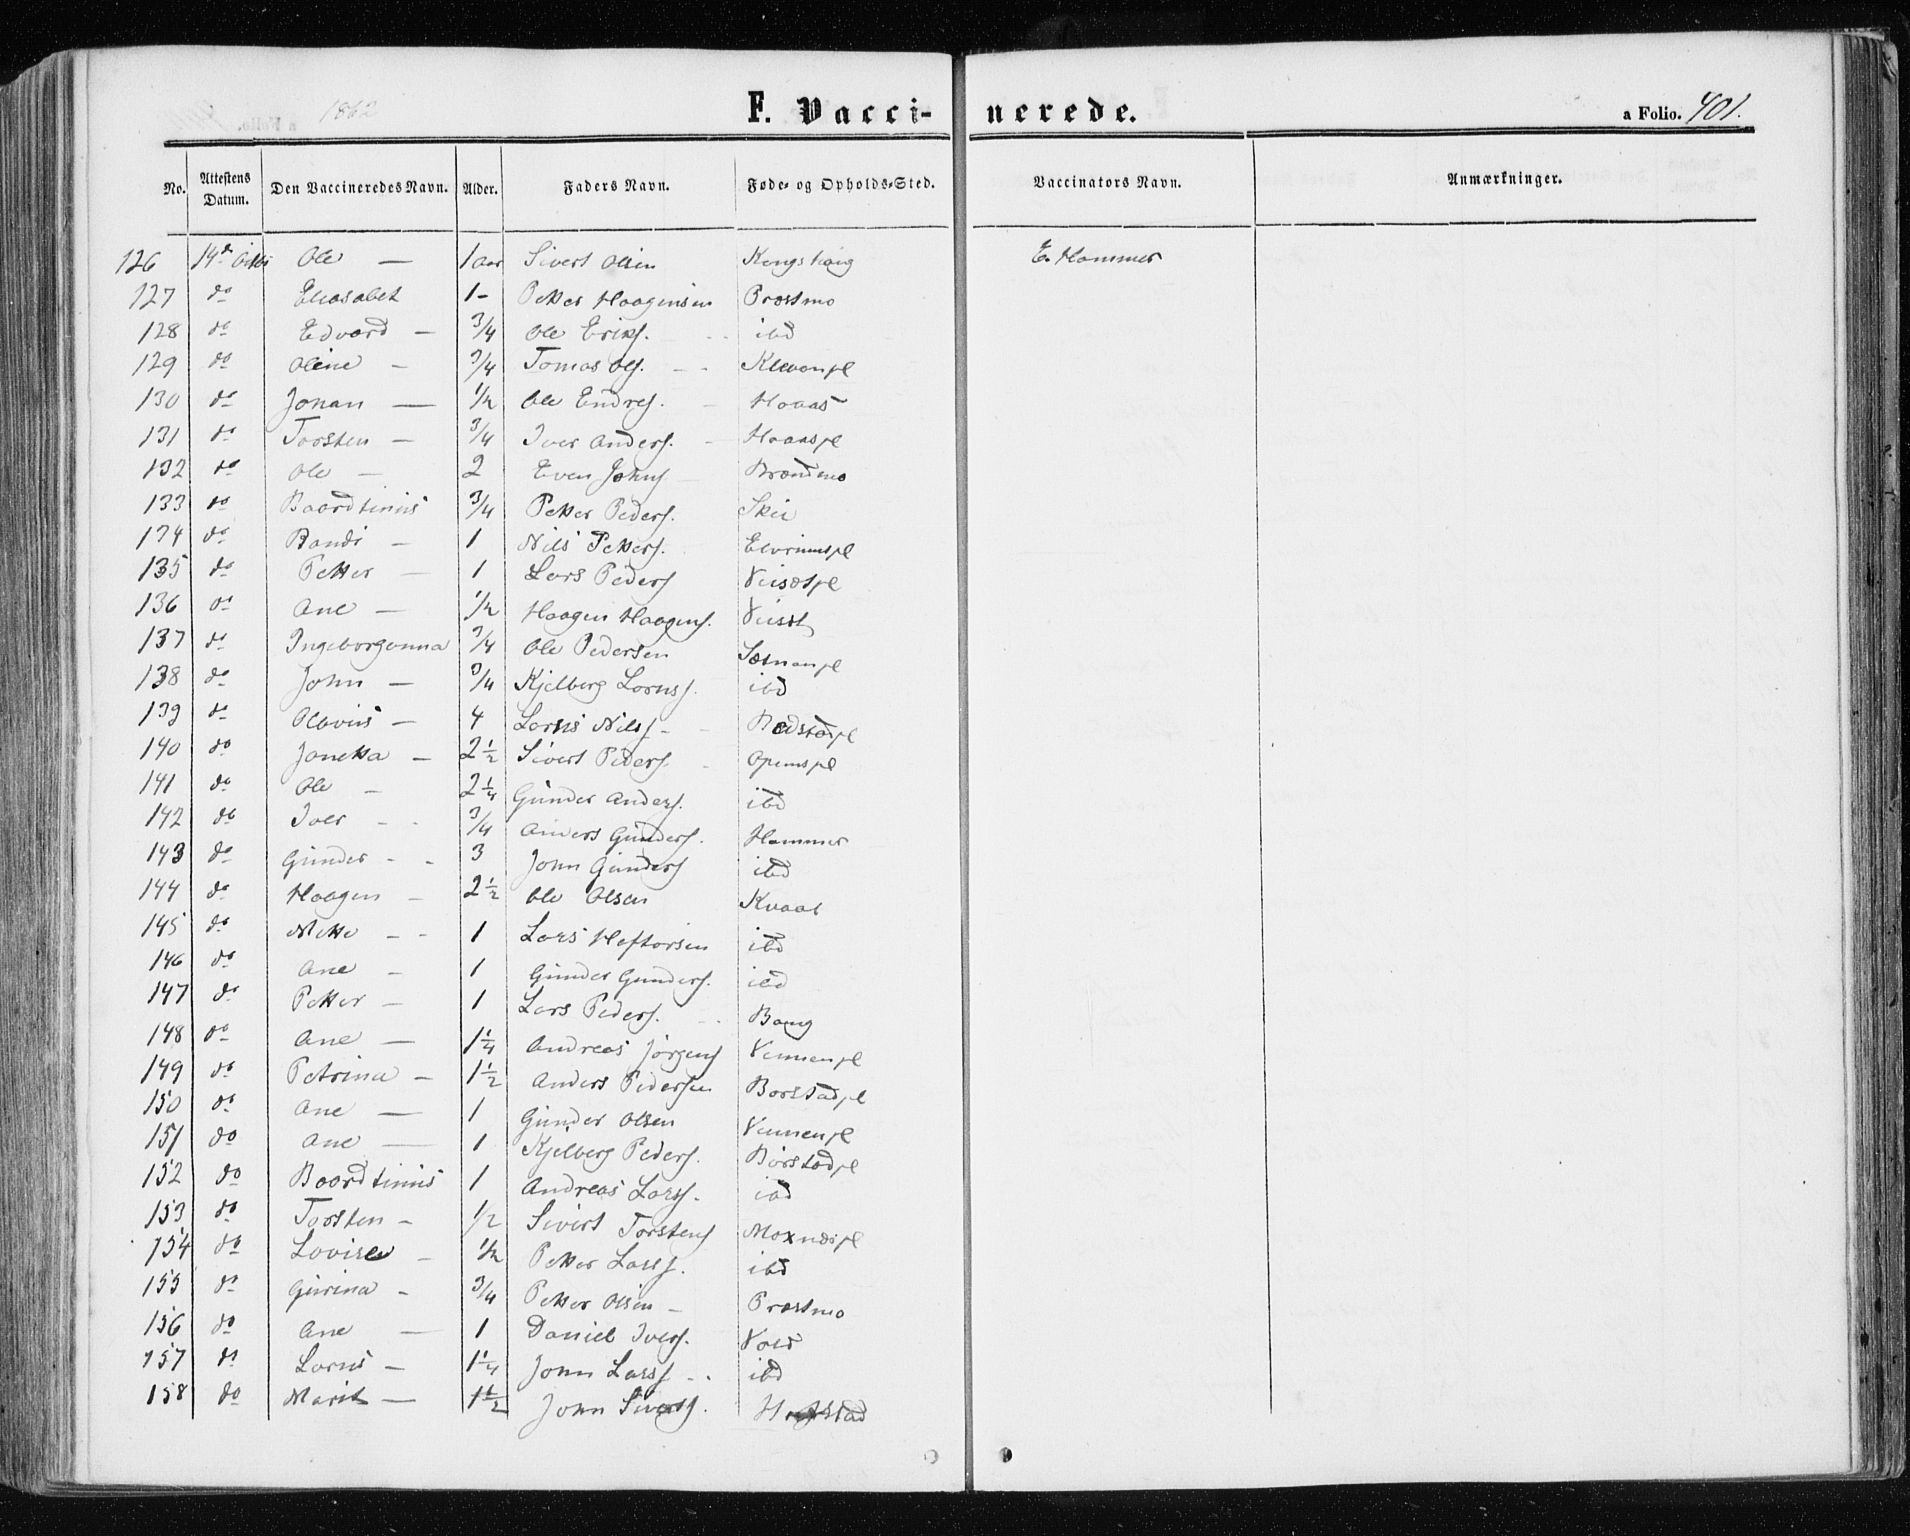 1862
F. Vacci- nerede.
a Folio. 401.
No. Attestens Datum. Den Vaccineredes Navn. Alder. Faders Navn. Føde- og Opholds-Sted. Vaccinators Navn. Anmærkninger.
126 14de Ole — 1 aar Sivert Olsen Kongshaug E. Hammer
127 do Elisabet 1- Petter Haagensen Præstmo
128 do Edvard — 3/4 Ole Eriks. ibd
129 do Oline — 3/4 Tomas Ols. Klevanpl
130 do Johan — 1/2 Ole Endres. Haaas
131 do Torsten — 3/4 Iver Anders. Haaaspl
132 do Ole — 2 Even Johns Brændmo
133 do Baardtinus 3/4 Petter Peders. Skei
134 do Randi — 1 Nils Petters. Elvrumspl
135 do Petter — 1 Lars Peders
136 do Ane — 1/2 Haagen Haagens.
137 do Ingeborganna 3/4 Ole Pedersen Sætnanpl
138 do John — 3/4 Kjelberg Lornts. ibd
139 do Olavus — 4 Lornts Nils.
140 do Janetta — 2 1/2 Sivert Peders. Opemspl
141 do Ole — 2 1/4 Gunder Anders. ibd
142 do Iver - - 3/4 Anders Gunders. Hammer
143 do Gunder - - 3 John Gunders ibd
144 do Haagen — 2 1/2 Ole Olsen Kvaal
145 do Mette - - 1 Lars Haftorsen ibd
146 do Ane — 1 Gunder Gunders. ibd
147 do Petter — 1 Lars Peders. Baug
148 do Ane — 1 1/4 Andreas Jørgens Vennenpl
149 do Petrina — 1 1/2 Anders Pedersen Borstadpl
150 do Ane — 1 Gunder Olsen Vennenpl
151 do Ane — 1 Kjelberg Peders. Borstadpl
152 do Baardtinus 1 Andreas Larss. ibd
153 do Torsten - 1/2 Sivert Torstens Moxnæspl
154 do Lovise — 1/2 Petter Larss. ibd
155 do Gurina - 3/4 Petter Olsen — Præstmo
156 do Ane — 1 Daniel Ivers. Vold
157 do Lornts — 1 1/4 John Larss - . ibd
158 do Marit — 1 1/2 John Siverts.